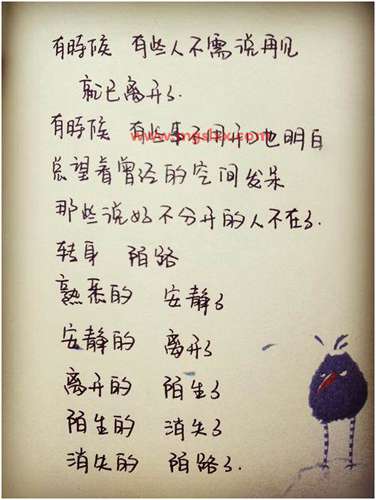 有時候 有些人不需说再见
就已离开了.
有時候 有些事不用开口也明白
www.mgsbxx.com
总望着曾经的空间发呆
那些说好不分开的人不在了.
转身 陌路
熟悉的 安静了
安静的 离开了
离开的 陌生了
陌生的 消失了
消失的 陌路了.